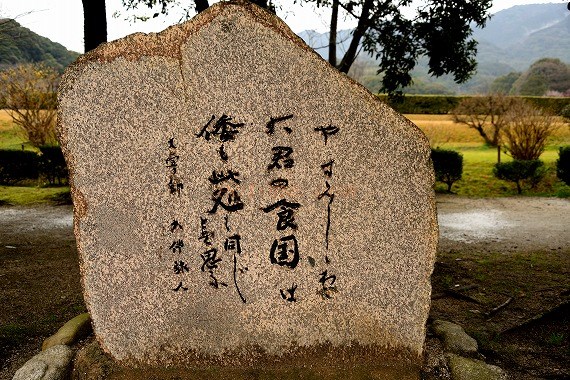 やすみしゝわ
大君の食国は
倭も此処も同じ
と曽思ふ
太宰帥 大伴旅人